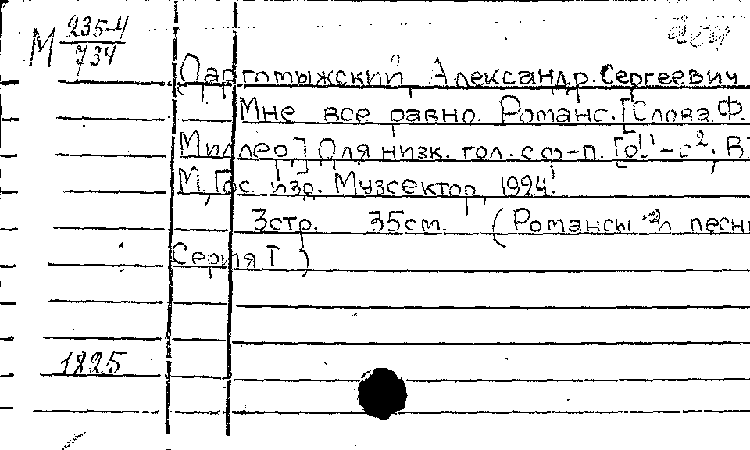 М 235-4
734
Даргомыжский, Александр Сергеевич
Мне все равно. Романс. [Слова Ф.
Миллера] Для низк. гол. с ф-п. [d¹-c²; В
М, Гос. изд. Музсектор, 1924.
3стр. 35см. (Романсы и песни
Серия I)
1825